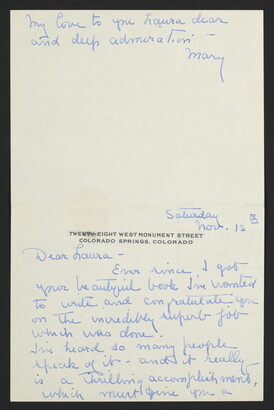 My love to you Laura dear
and deep admiration –
Mary
Saturday
Nov. 12th
TWENTY EIGHT WEST MONUMENT STREET
COLORADO SPRINGS, COLORADO
Dear Laura –
Ever since I got
your beautiful book I've wanted
to write and congratulate you
on the incredibly superb job
which was done.
I've heard so many people
speak of it – and it really
is a thrilling accomplishment,
which must give you a